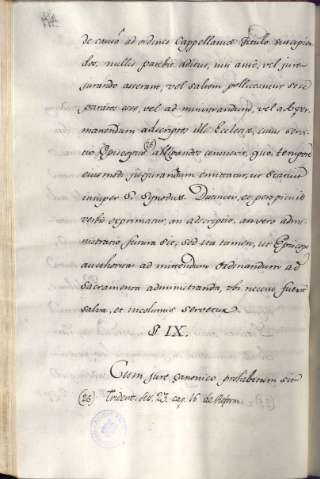 de causâ ad ordines Cappellaniæ titulo suscipien
dos, nullis patebit aditus, nisi antè, vel jure
jurando asserant, vel saltem polliceantur se se
paratos esse, vel ad ministrandum, vel ad
adscriptos illi Ecclesiæ, cuius servi
tio Episcopus censuerit, quo tempore
eiusmodi jusjurandum emittatur, ut
insuper S. Synodus. Decernit, ut perspicuis
verbis exprimatur, an adscriptio, an vero admi
nistratio, futura sit, sed ita tamen, ut Episcopi
authoritas ad mittendum ordinandum ad
Sacramenta administranda, ubi necesse fuerit
salva, et incolumis servetur.
§ IX.
Cum jure canonico prohibitum sit
(26) Trident. ses. 23. cap. 16 de Reform.